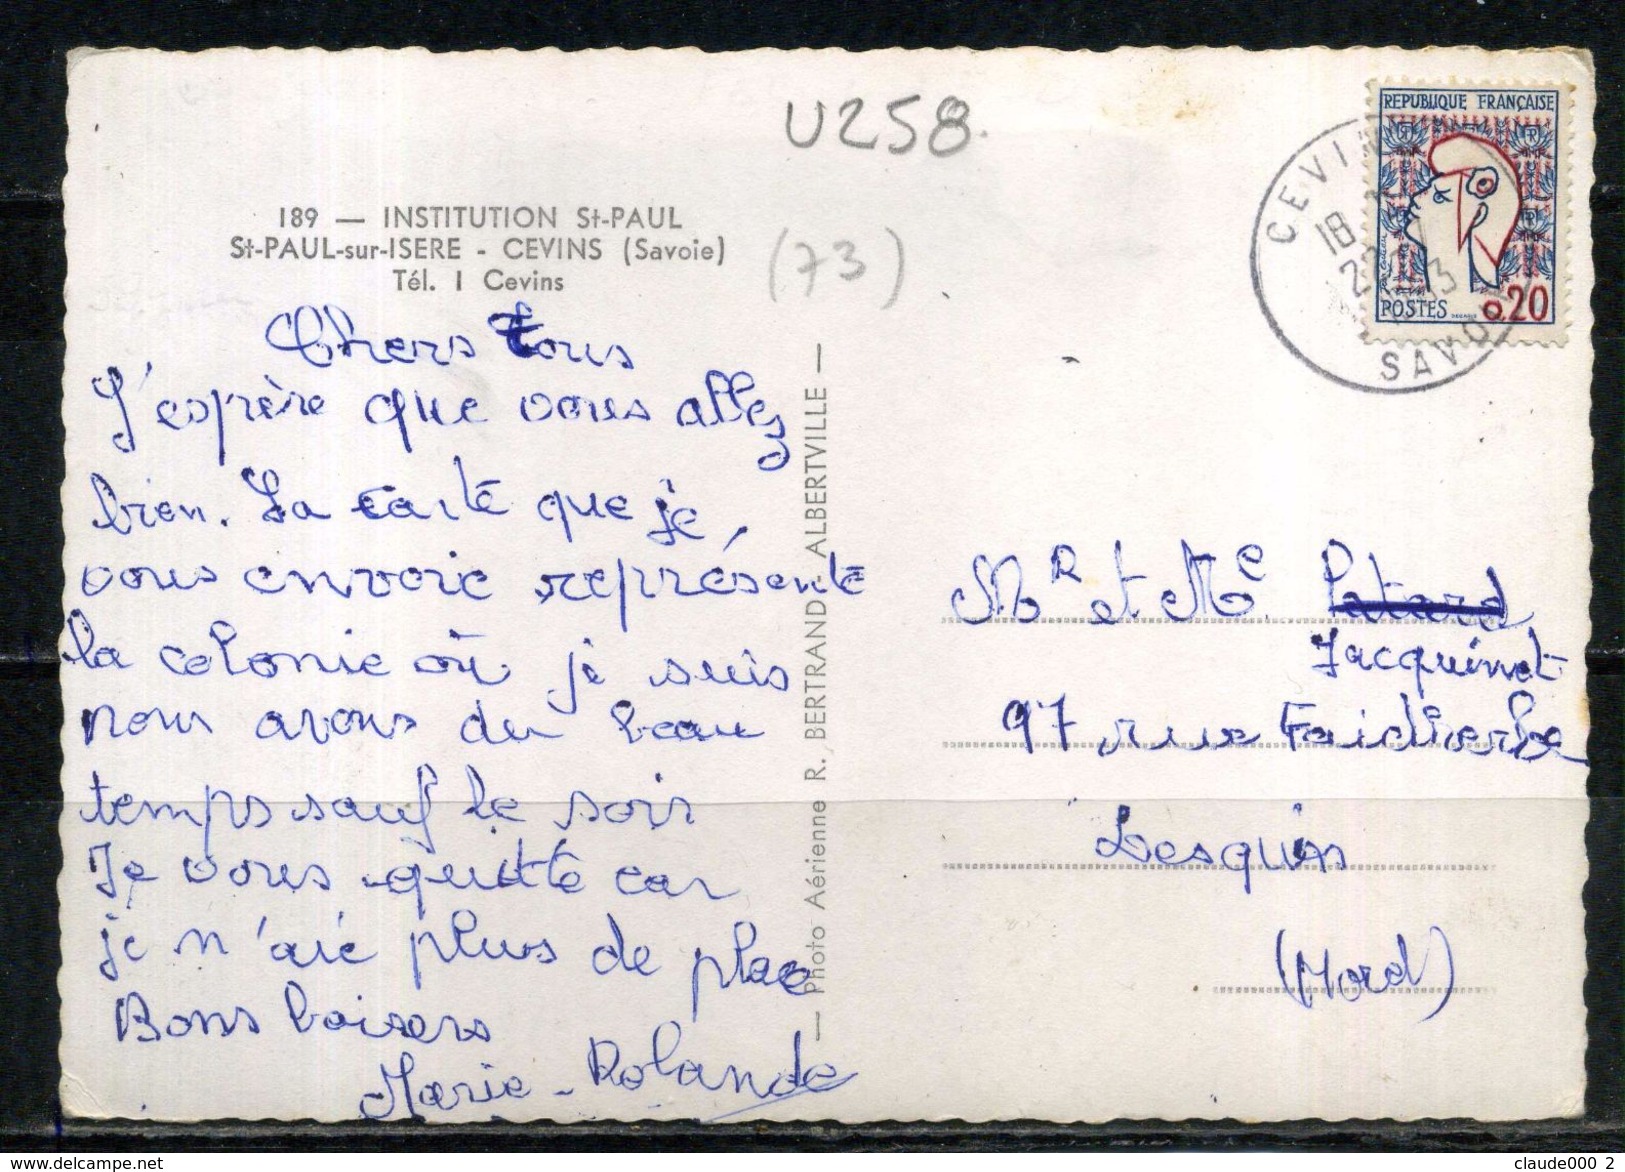 U258.
189 — INSTITUTION St-PAUL
St-PAUL-sur-ISERE - CEVINS (Savoie)
Tél. 1 Cevins
(73)
Chers tous
J'espère que vous allez
bien. La carte que je
vous envoie représente
la colonie où je suis
nous avons du beau
temps sauf le soir
Je vous quitte car
je n'aie plus de place
Bons baisers
Marie-Rolande
— Photo Aérienne R. BERTRAND ALBERTVILLE —
REPUBLIQUE FRANÇAISE
POSTES 0,20
CEVINS
18
SAVOIE
Mr et Me Patard
Jacquinet
97, rue Faidherbe
Lesquin
(Nord)
delcampe.net
claude000_2